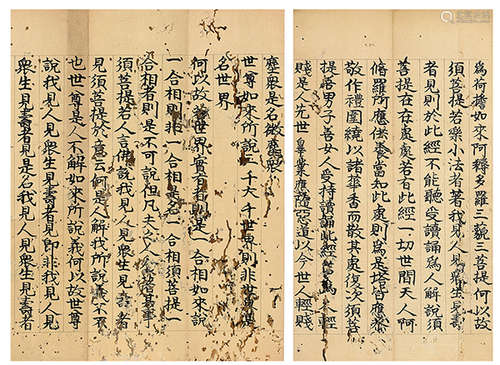 為荷擔如來阿耨多羅三藐三菩提何以故
須菩提若樂小法者著我見人見衆生見壽
者見則於此經不能聽受讀誦為人解說須
菩提在在處處若有此經一切世間天人阿
脩羅所應供養當知此處則為是塔皆應恭
敬作禮圍繞以諸華香而散其處復次須菩
提善男子善女人受持讀誦此經若為人輕
賤是人先世罪業應墮惡道以今世人輕賤
塵衆是名微塵衆
世尊如來所說三千大千世界則非世界是
名世界
何以故若世界實有者則是一合相如來說
一合相則非一合相是名一合相須菩提一
合相者則是不可說但凡夫之人貪著其事
須菩提若人言佛說我見人見衆生見壽者
見須菩提於意云何是人解我所說義不不
也世尊是人不解如來所說義何以故世尊
說我見人見衆生見壽者見即非我見人見
衆生見壽者見是名我見人見衆生見壽者